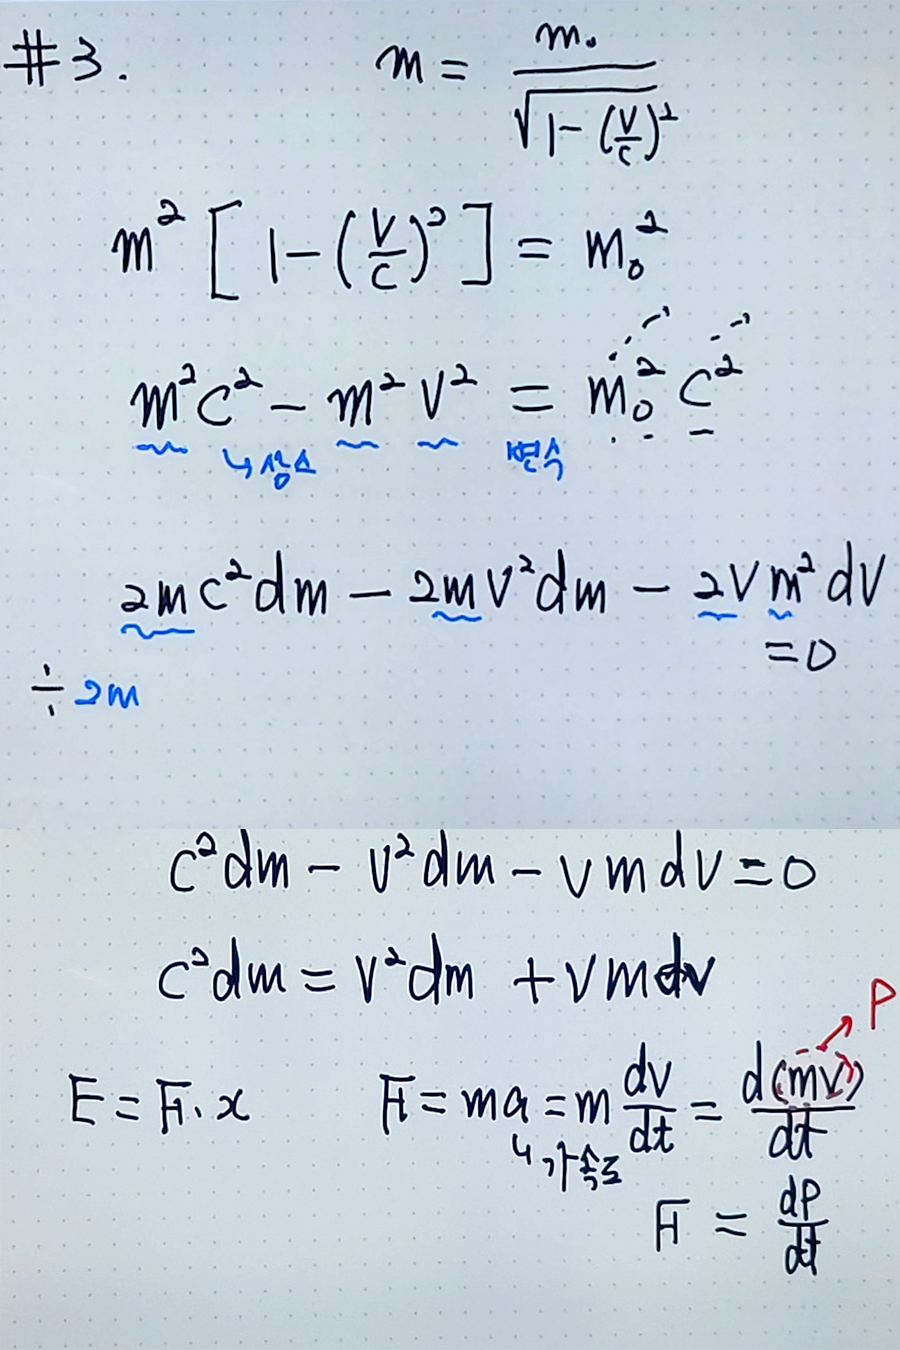 #3. m = m₀ / √(1-(v/c)²)
m² [ 1-(v/c)² ] = m₀²
m²c² - m²v² = m₀²c²
↳상수 변수
2mc²dm - 2mv²dm - 2vm²dv
=0
÷ 2m
c²dm - v²dm - vmdv = 0
c²dm = v²dm + vmdv
P
E = F·x F = ma = m dv/dt = d(mv)/dt
↳가속도
F = dP/dt